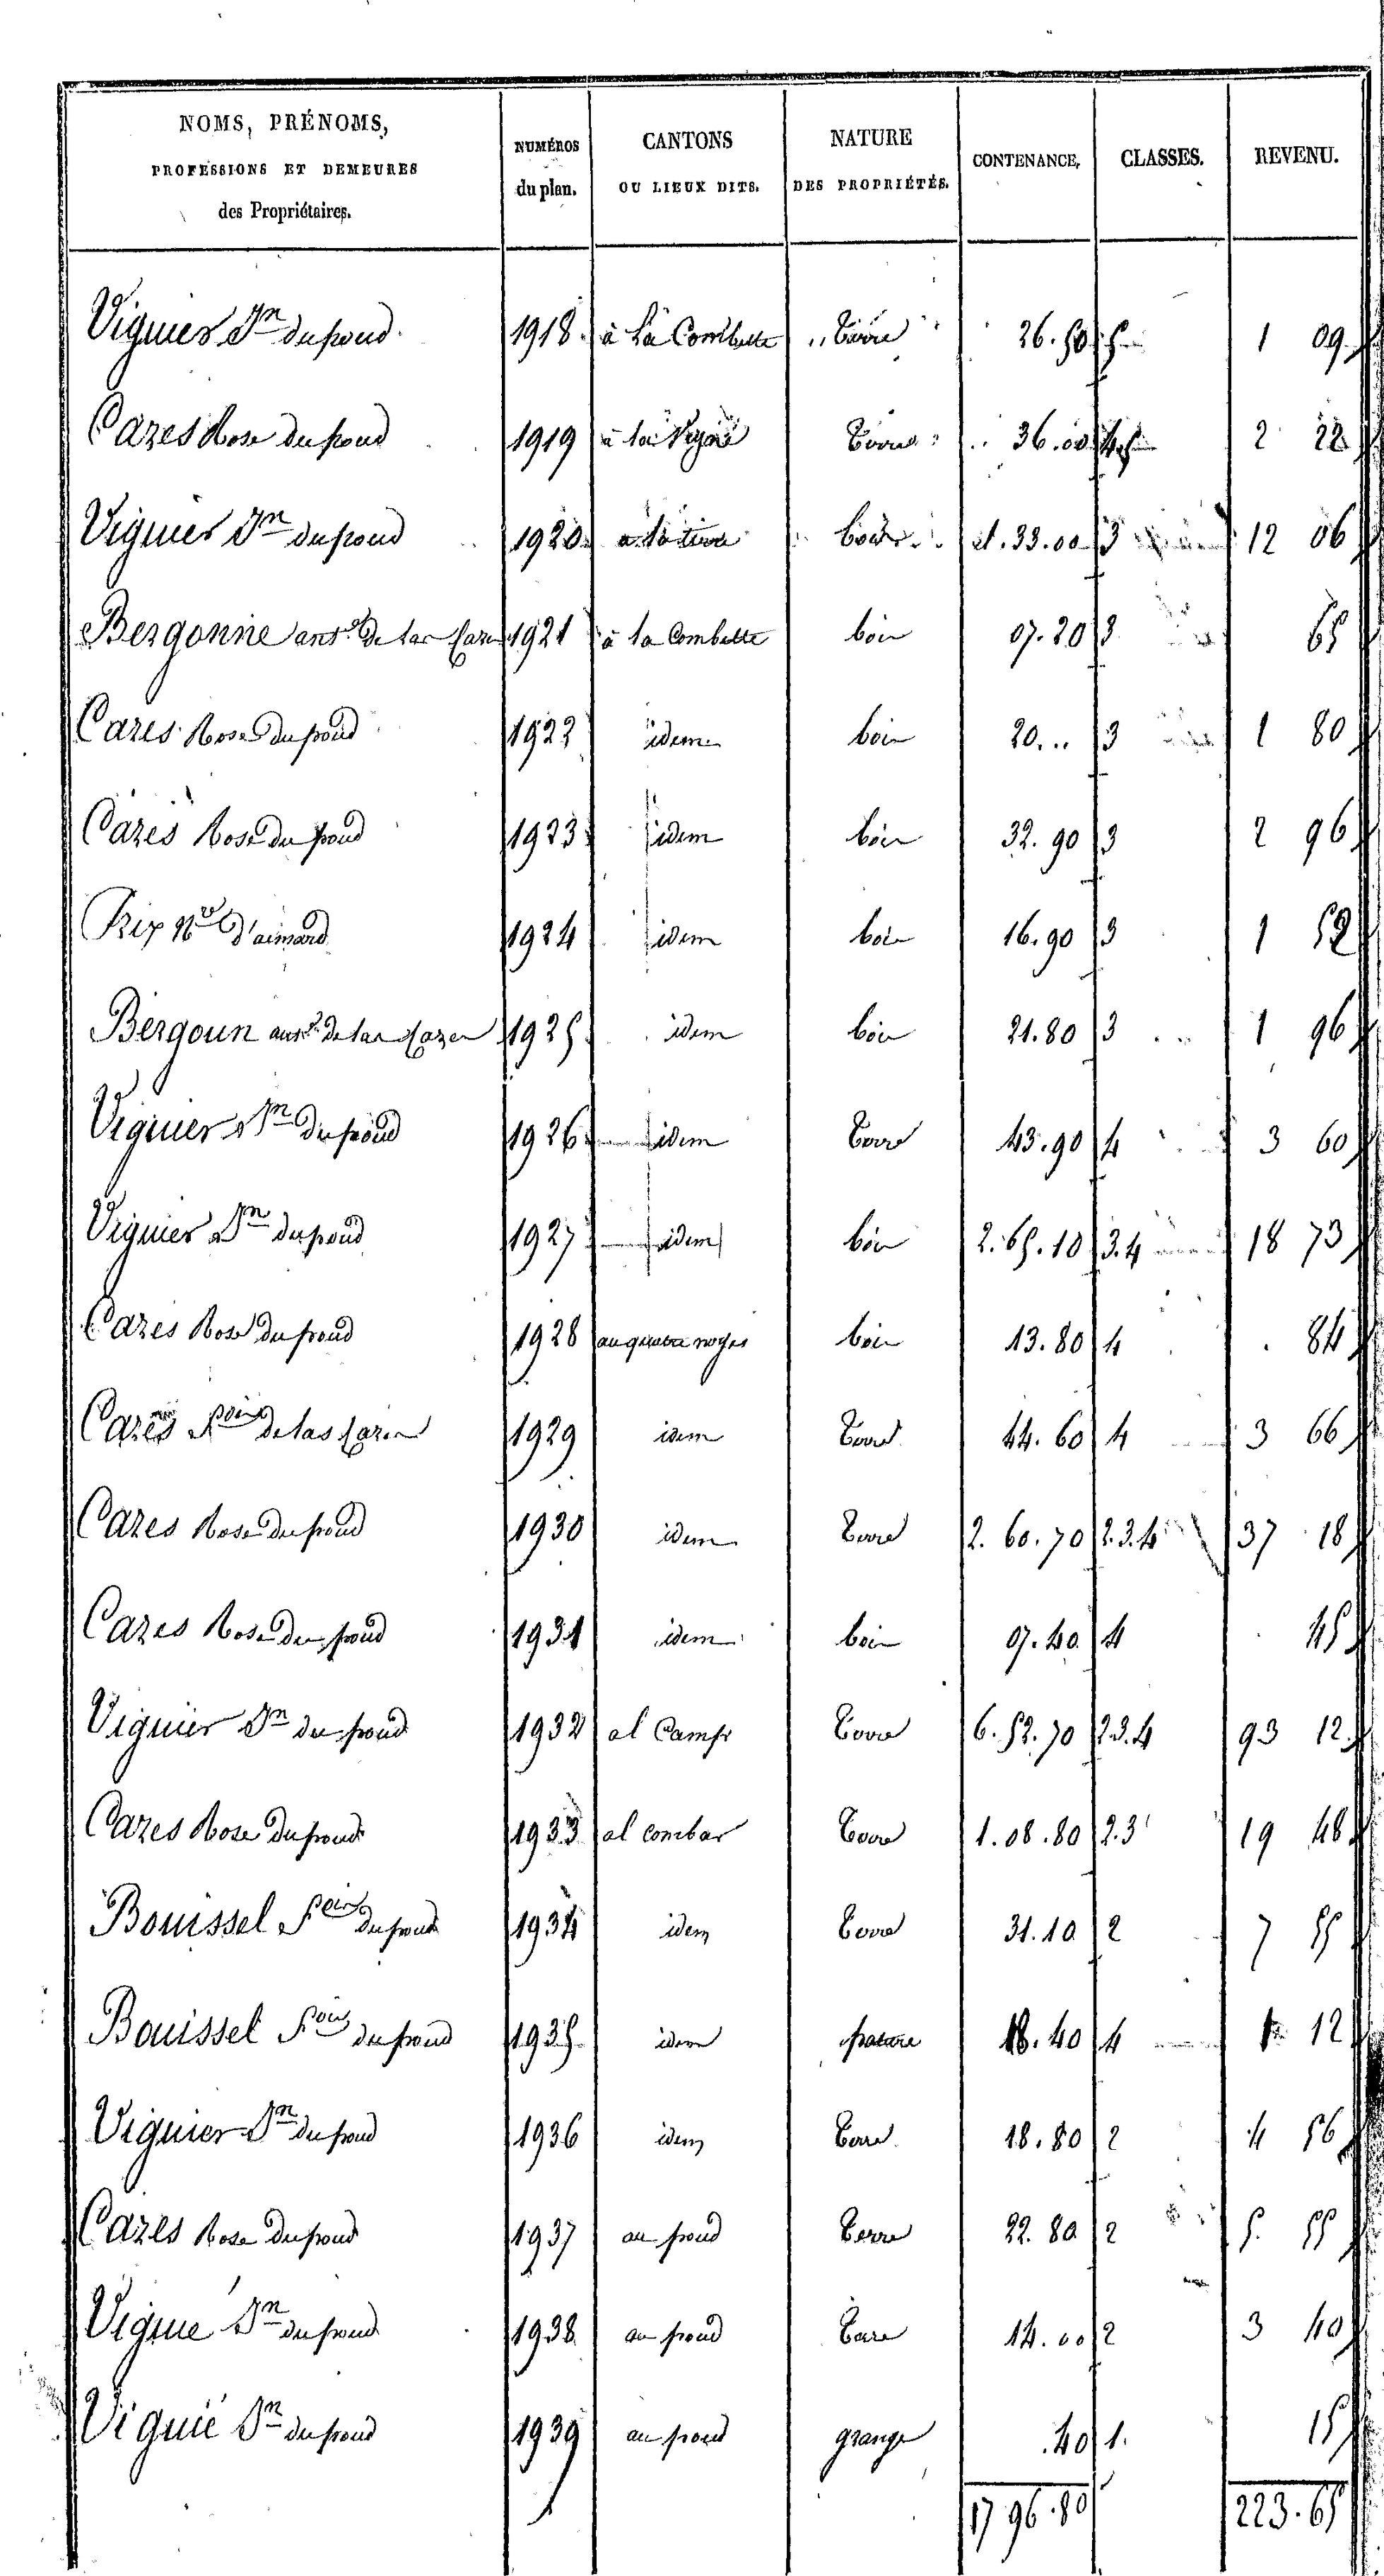 NOMS, PRÉNOMS, PROFESSIONS ET DEMEURES des Propriétaires. NUMÉROS du plan. CANTONS OU LIEUX DITS. NATURE DES PROPRIÉTÉS. CONTENANCE. CLASSES. REVENU.
Viguier Jn du fraud 1918 à la Combette terre 26.50 5 1 09
Cazes Rose du fraud 1919 à la terre 36.00 2 22
Viguier Jn du fraud 1920 bois 1.33.00 3 12 06
Bergonne de las Cazes 1921 à la Combette bois 07.20 3 65
Cazes Rose du fraud 1922 idem bois 20... 3 1 80
Cazes Rose du fraud 1923 idem bois 32.90 3 2 96
Rix d'aimard 1924 idem bois 16.90 3 1 52
Bergoun de las Cazes 1925 idem bois 21.80 3 1 96
Viguier Jn du fraud 1926 idem terre 43.90 4 3 60
Viguier Jn du fraud 1927 idem bois 2.65.10 3.4 18 73
Cazes Rose du fraud 1928 bois 13.80 4 84
Cazes de las Cazes 1929 idem terre 44.60 4 3 66
Cazes Rose du fraud 1930 idem terre 2.60.70 2.3.4 37 18
Cazes Rose du fraud 1931 idem bois 07.40 4 45
Viguier Jn du fraud 1932 al Camp terre 6.52.70 2.3.4 93 12
Cazes Rose du fraud 1933 al combar terre 1.08.80 2.3 19 48
Bouissel du fraud 1934 idem terre 31.10 2 7 55
Bouissel du fraud 1935 idem pature 18.40 4 1 12
Viguier Jn du fraud 1936 idem terre 18.80 2 4 56
Cazes Rose du fraud 1937 au fraud terre 22.80 2 5 55
Viguie Jn du fraud 1938 au fraud terre 14.00 2 3 40
Viguié Jn du fraud 1939 au fraud grange .40 1. 15
17 96.80 223.65